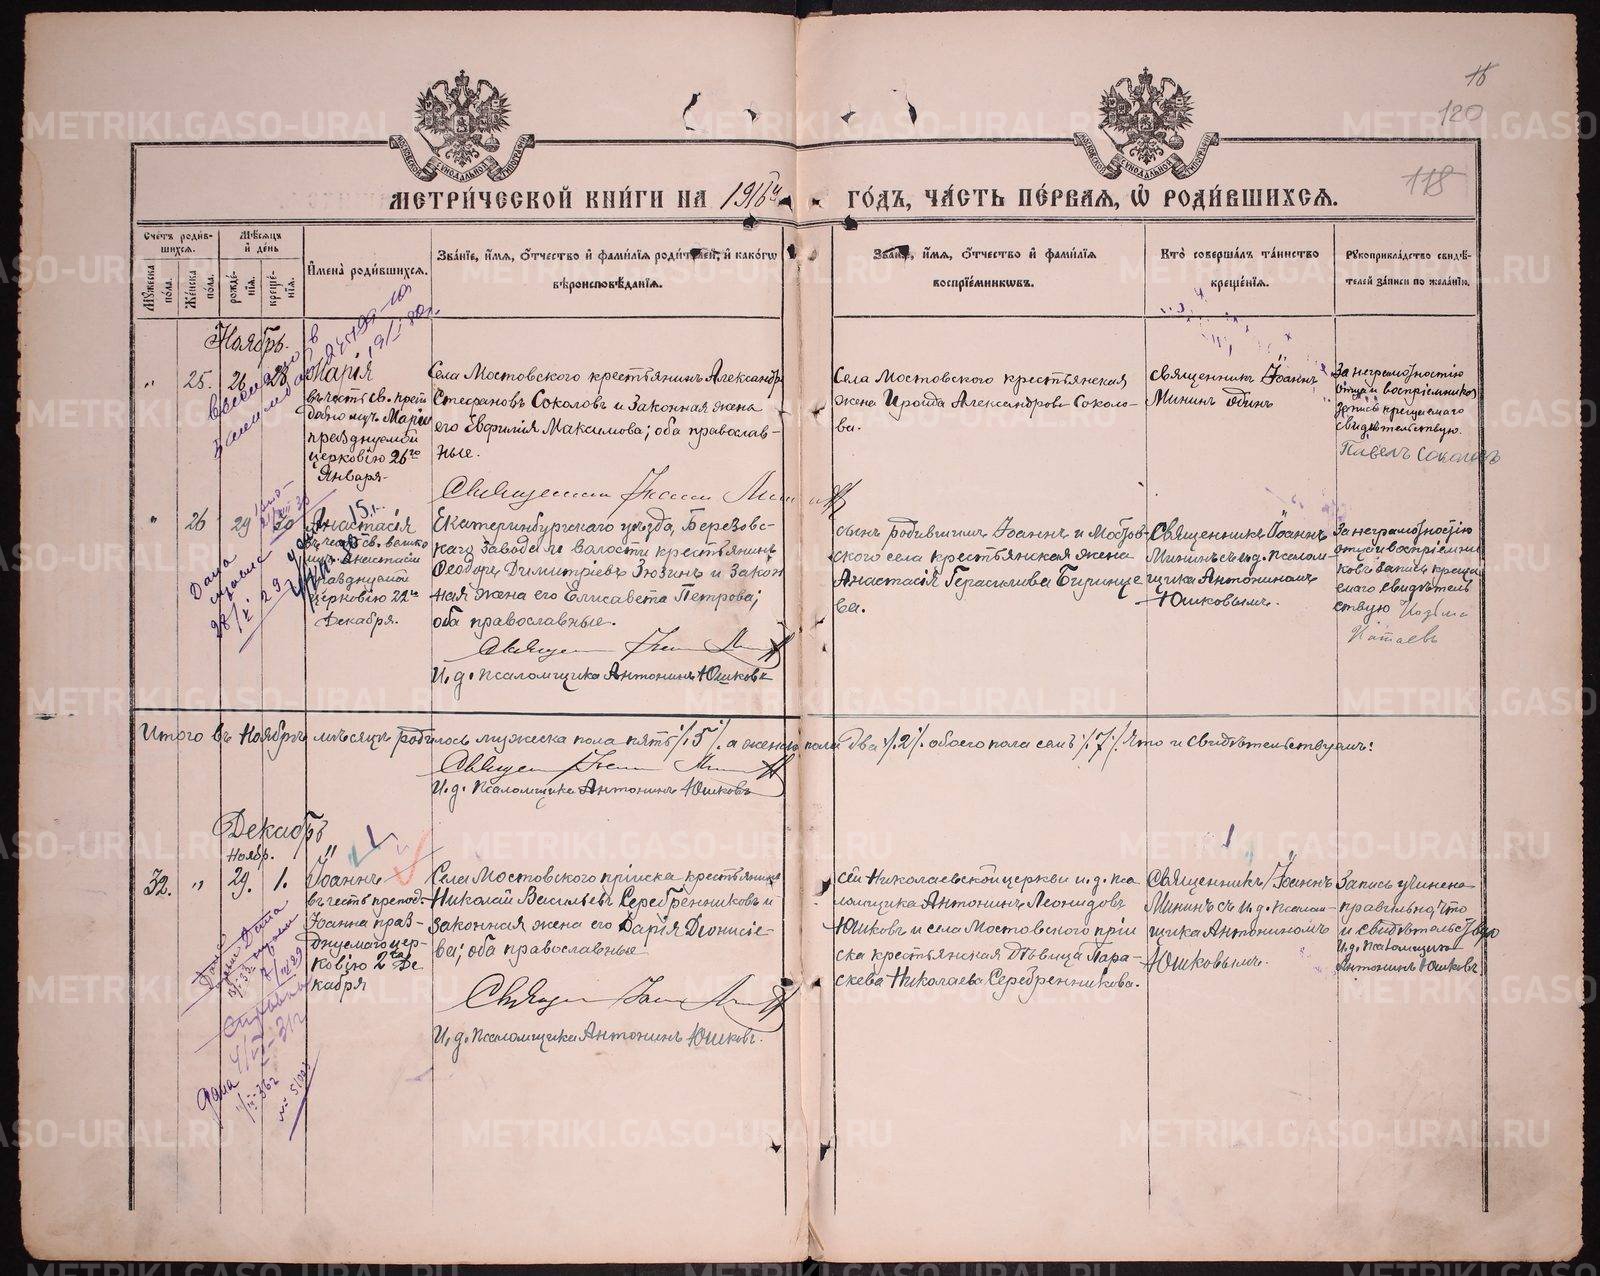 16
120
118
МЕТРИ́ЧЕСКОЙ КНИ́ГИ НА 1916й ГО́ДЪ, ЧА́СТЬ ПЕ́РВАЯ, Ѡ РОДИ́ВШИХСЯ.
Сче́тъ роди́вшихся.
Мѣ́сяцъ и́ де́нь
Му́жеска по́ла.
Же́нска по́ла.
рожде́нія.
креще́нія.
И҆мена̀ роди́вшихся.
Зва́ніе, и҆́мя, о҆́тчество и҆ фами́лія роди́телей, и҆ како́гѡ
вѣроисповѣ́данія.
Зва́ніе, и҆́мя, о҆́тчество и҆ фами́лія
воспріе́мникѡвъ.
Кто̀ соверша́лъ та́инство
креще́нія.
Рукоприкла́дство свидѣ́телей за́писи по жела́нію.
Ноябрь.
" 25. 26 28
Марія
въ честь св. преподобно муч. Маріи
празднуемой
церковію 26го
Января.
Села Мостовского крестьянинъ Александръ
Стефановъ Соколовъ и законная жена
его Евфилія Максимова; оба православные.
Села Мостовского крестьянская
жена Ираида Александрова Соколова.
Священникъ Іоаннъ
Мининъ одинъ
За неграмотностію
отца и воспріемника
запись крещаемаго
свидѣтельствую.
Павелъ Соколовъ
Священникъ Іоаннъ Мининъ
" 26 29 30
Анастасія
въ честь св. велико
муч. Анастасіи
празднуемой
церковію 22го
Декабря.
Екатеринбургскаго уѣзда, Березовскаго завода и волости крестьянинъ
Ѳеодоръ Димитріевъ Зюзинъ и законная жена его Елисавета Петрова;
оба православные.
сынъ родившихъ Іоаннъ и Мостовского села крестьянская жена
Анастасія Герасимова Биринцева.
Священникъ Іоаннъ
Мининъ съ и.д. псаломщика Антониномъ
Юшковымъ.
За неграмотностію
отца и воспріемниковъ запись крещаемаго свидѣтельствую
Священникъ Іоаннъ Мининъ
И. д. псаломщика Антонинъ Юшковъ
Итого въ Ноябрѣ мѣсяцѣ родилось мужеска пола пять /5/, а женска пола два /2/ обоего пола семь /7/. Что и свидѣтельствуемъ:
Священникъ Іоаннъ Мининъ
И. д. псаломщика Антонинъ Юшковъ
Декабрь
Ноябр.
32. " 29. 1.
Іоаннъ
въ честь препод.
Іоанна празднуемаго церковію 2го Декабря
Села Мостовского пріиска крестьянинъ
Николай Васильевъ Серебренниковъ и
законная жена его Дарія Діонисіева; оба православные
сей Николаевской церкви и. д. псаломщика Антонинъ Леонидовъ
Юшковъ и села Мостовского пріиска крестьянская дѣвица Параскева Николаева Серебренникова.
Священникъ Іоаннъ
Мининъ съ и.д. псаломщика Антониномъ
Юшковымъ.
Запись учинена
правильно, что
и свидѣтельствую
И.д. псаломщика
Антонинъ Юшковъ
Священникъ Іоаннъ Мининъ
И. д. псаломщика Антонинъ Юшковъ.
METRIKI.GASO-URAL.RU